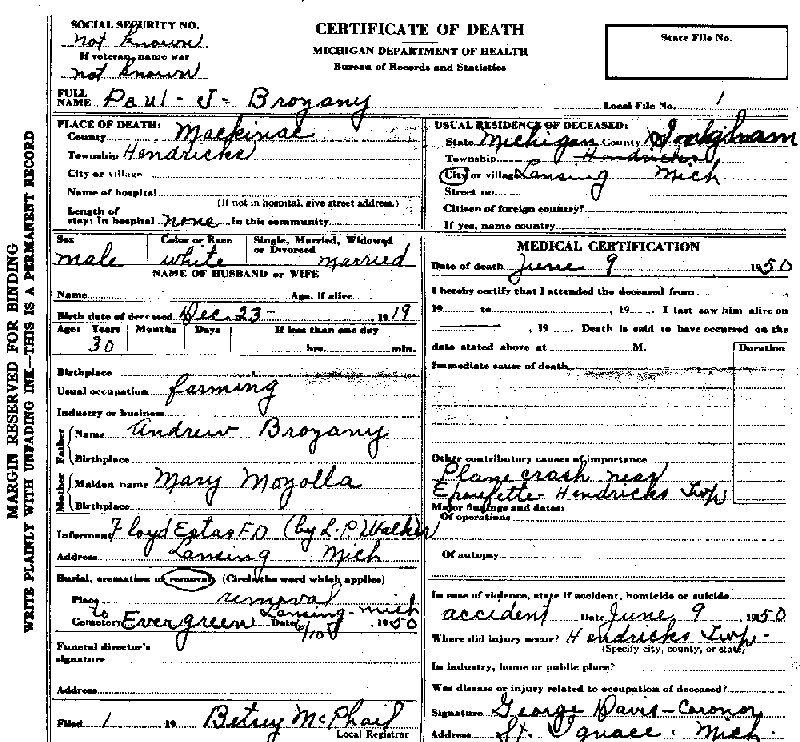 SOCIAL SECURITY NO.
not known
If veteran, name war
not known
CERTIFICATE OF DEATH
MICHIGAN DEPARTMENT OF HEALTH
Bureau of Records and Statistics
State File No.
FULL NAME Paul - J - Brozany
Local File No. 1
MARGIN RESERVED FOR BINDING
WRITE PLAINLY WITH UNFADING INK—THIS IS A PERMANENT RECORD
PLACE OF DEATH:
County Mackinac
Township Hendricks
City or village
Name of hospital
(If not in hospital, give street address.)
Length of stay: In hospital none In this community
USUAL RESIDENCE OF DECEASED:
State Michigan County
Township Hendricks
City or village Lansing Mich
Street no.
Citizen of foreign country?
If yes, name country
Sex male
Color or Race white
Single, Married, Widowed or Divorced married
NAME OF HUSBAND or WIFE
Name Age, if alive
Birth date of deceased Dec. 23 - 1919
Age: Years Months Days If less than one day
30 hrs. min.
Birthplace
Usual occupation farming
Industry or business
Father Name Andrew Brozany
Birthplace
Mother Maiden name Mary Mozolla
Birthplace
Informant Floyd Estas FD (by L.P Walker
Address Lansing Mich
Burial, cremation or removal (Circle the word which applies)
Place removal
to Lansing - Mich
Cemetery Evergreen Date 6/10 1950
Funeral director's signature
Address
Filed 1 19 Betsey McPhail
Local Registrar
MEDICAL CERTIFICATION
Date of death June 9 1950
I hereby certify that I attended the deceased from
19 to , 19 . I last saw him alive on
, 19 . Death is said to have occurred on the
date stated above at M.
Duration
Immediate cause of death
Other contributory causes of importance
Plane crash near
Epoufette Hendricks Twp
Major findings and dates:
Of operations
Of autopsy
In case of violence, state if accident, homicide or suicide
accident Date June 9 1950
Where did injury occur? Hendricks Twp -
(Specify city, county, or state)
In industry, home or public place?
Was disease or injury related to occupation of deceased?
Signature George Davis - Coronor
Address St. Ignace. Mich.